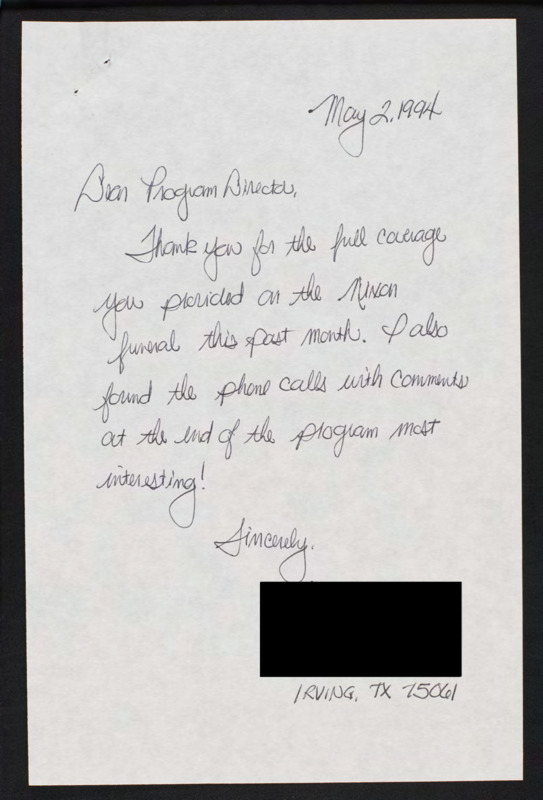 May 2, 1994
Dear Program Director,
Thank you for the full coverage
you provided on the Nixon
funeral this past month. I also
found the phone calls with comments
at the end of the program most
interesting!
Sincerely,
IRVING, TX 75061